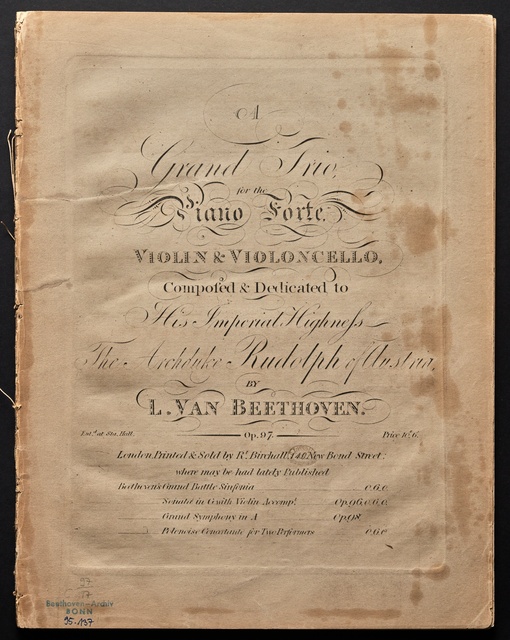 A
Grand Trio,
for the
Piano Forte.
VIOLIN & VIOLONCELLO,
Compoſed & Dedicated to
His Imperial Highneſs
The Archduke Rudolph of Austria,
BY
L. VAN BEETHOVEN.
Ent.d at Sta. Hall. Op. 97. Price
London, Printed & Sold by R.t Birchall, 140, New Bond Street.
where may be had lately Published
Beethoven's Grand Battle Sinfonia
Sonata in G with Violin Accomp.t Op. 96
Grand Symphony in A Op. 98
Polonoise Concertante for Two Performers
Beethoven-Archiv
BONN